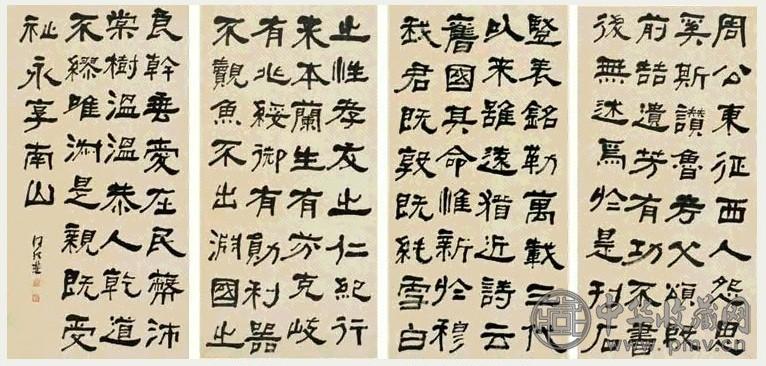 周公東征西人怨思
奚斯讚魯考父頌殷
前喆遺芳有功不書
後無述焉於是刊石
豎表銘勒萬載三代
以來雖遠猶近詩云
舊國其命惟新於穆
我君既敦既純雪白
之性孝友之仁紀行
来本蘭生有芬克岐
有兆綏御有勛利器
不覿魚不出淵國之
良幹垂愛在民蔽沛
棠樹温温恭人乾道
不繆唯淑是親既受
祉永享南山
何紹基
中华收藏网
www.pmv.cn